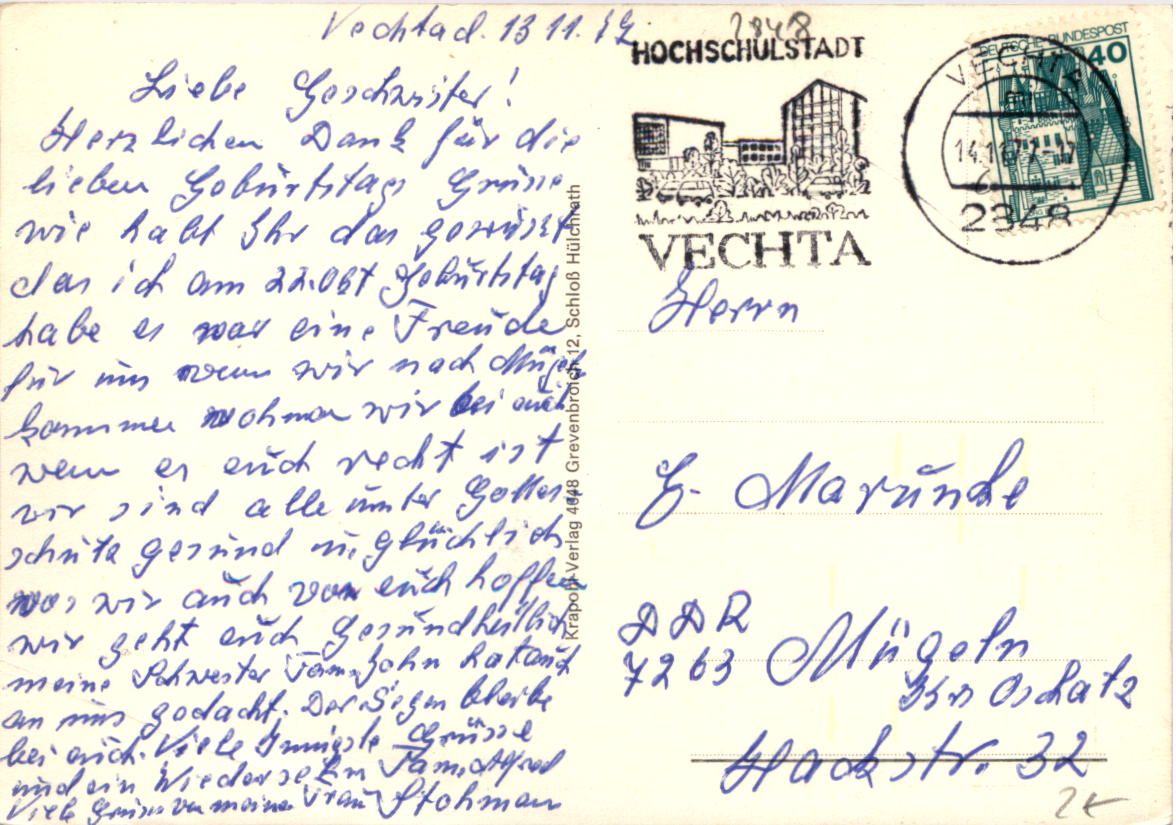 Vechta d. 13 11.
2848
Liebe Geschwister!
Herzlichen Dank für die
lieben Geburtstags Grüsse
wie habt Ihr das gewüsst
das ich am 22. Okt Geburtstag
habe es war eine Freude
für uns wenn wir nach Mügeln
kommen wohnen wir bei euch
wenn es euch recht ist
wir sind alle unter Gottes
schutz gesund u. glücklich
was wir auch von euch hoffen
wir geht euch Gesundheitlich
meine Schwester Fam. John hat auch
an uns gedacht. Der Segen bleibe
bei euch. Viele Innigste Grüsse
und ein Wiedersehn Fam. Alfred
Viele Grüsse von meiner Frau Stohman
Krapohl-Verlag 4048 Grevenbroich 12, Schloß Hülchrath
HOCHSCHULSTADT
VECHTA
DEUTSCHE BUNDESPOST
40
VECHTA
2348
Herrn
G. Marunke
DDR
7263 Mügeln
Krs Oschatz
Hackstr. 32